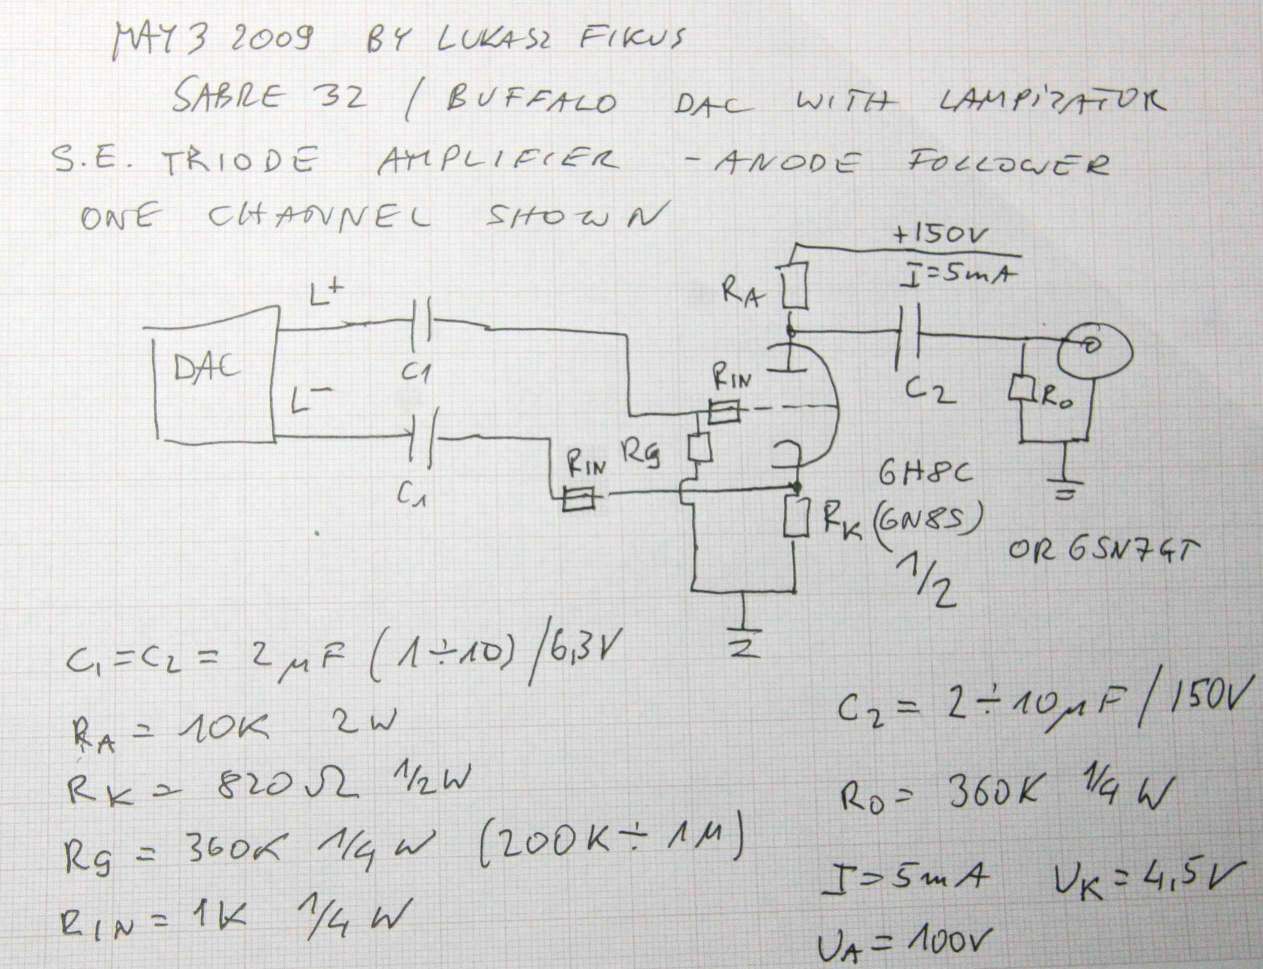 MAY 3 2009 BY LUKASZ FIKUS
SABRE 32 / BUFFALO DAC WITH LAMPiZATOR
S.E. TRIODE AMPLIFIER - ANODE FOLLOWER
ONE CHANNEL SHOWN
+150V
I=5mA
RA
L+
C1
DAC
L-
C1
RIN
Rg
RIN
C2
Ro
RK
6H8C
(6N8S)
1/2
OR 6SN7GT
C1=C2 = 2μF (1÷10) /6,3V
RA = 10K 2W
RK = 820Ω 1/2W
Rg = 360K 1/4W (200K÷1M)
RIN = 1K 1/4W
C2 = 2÷10μF / 150V
RO = 360K 1/4W
I=5mA UK=4,5V
UA=100V